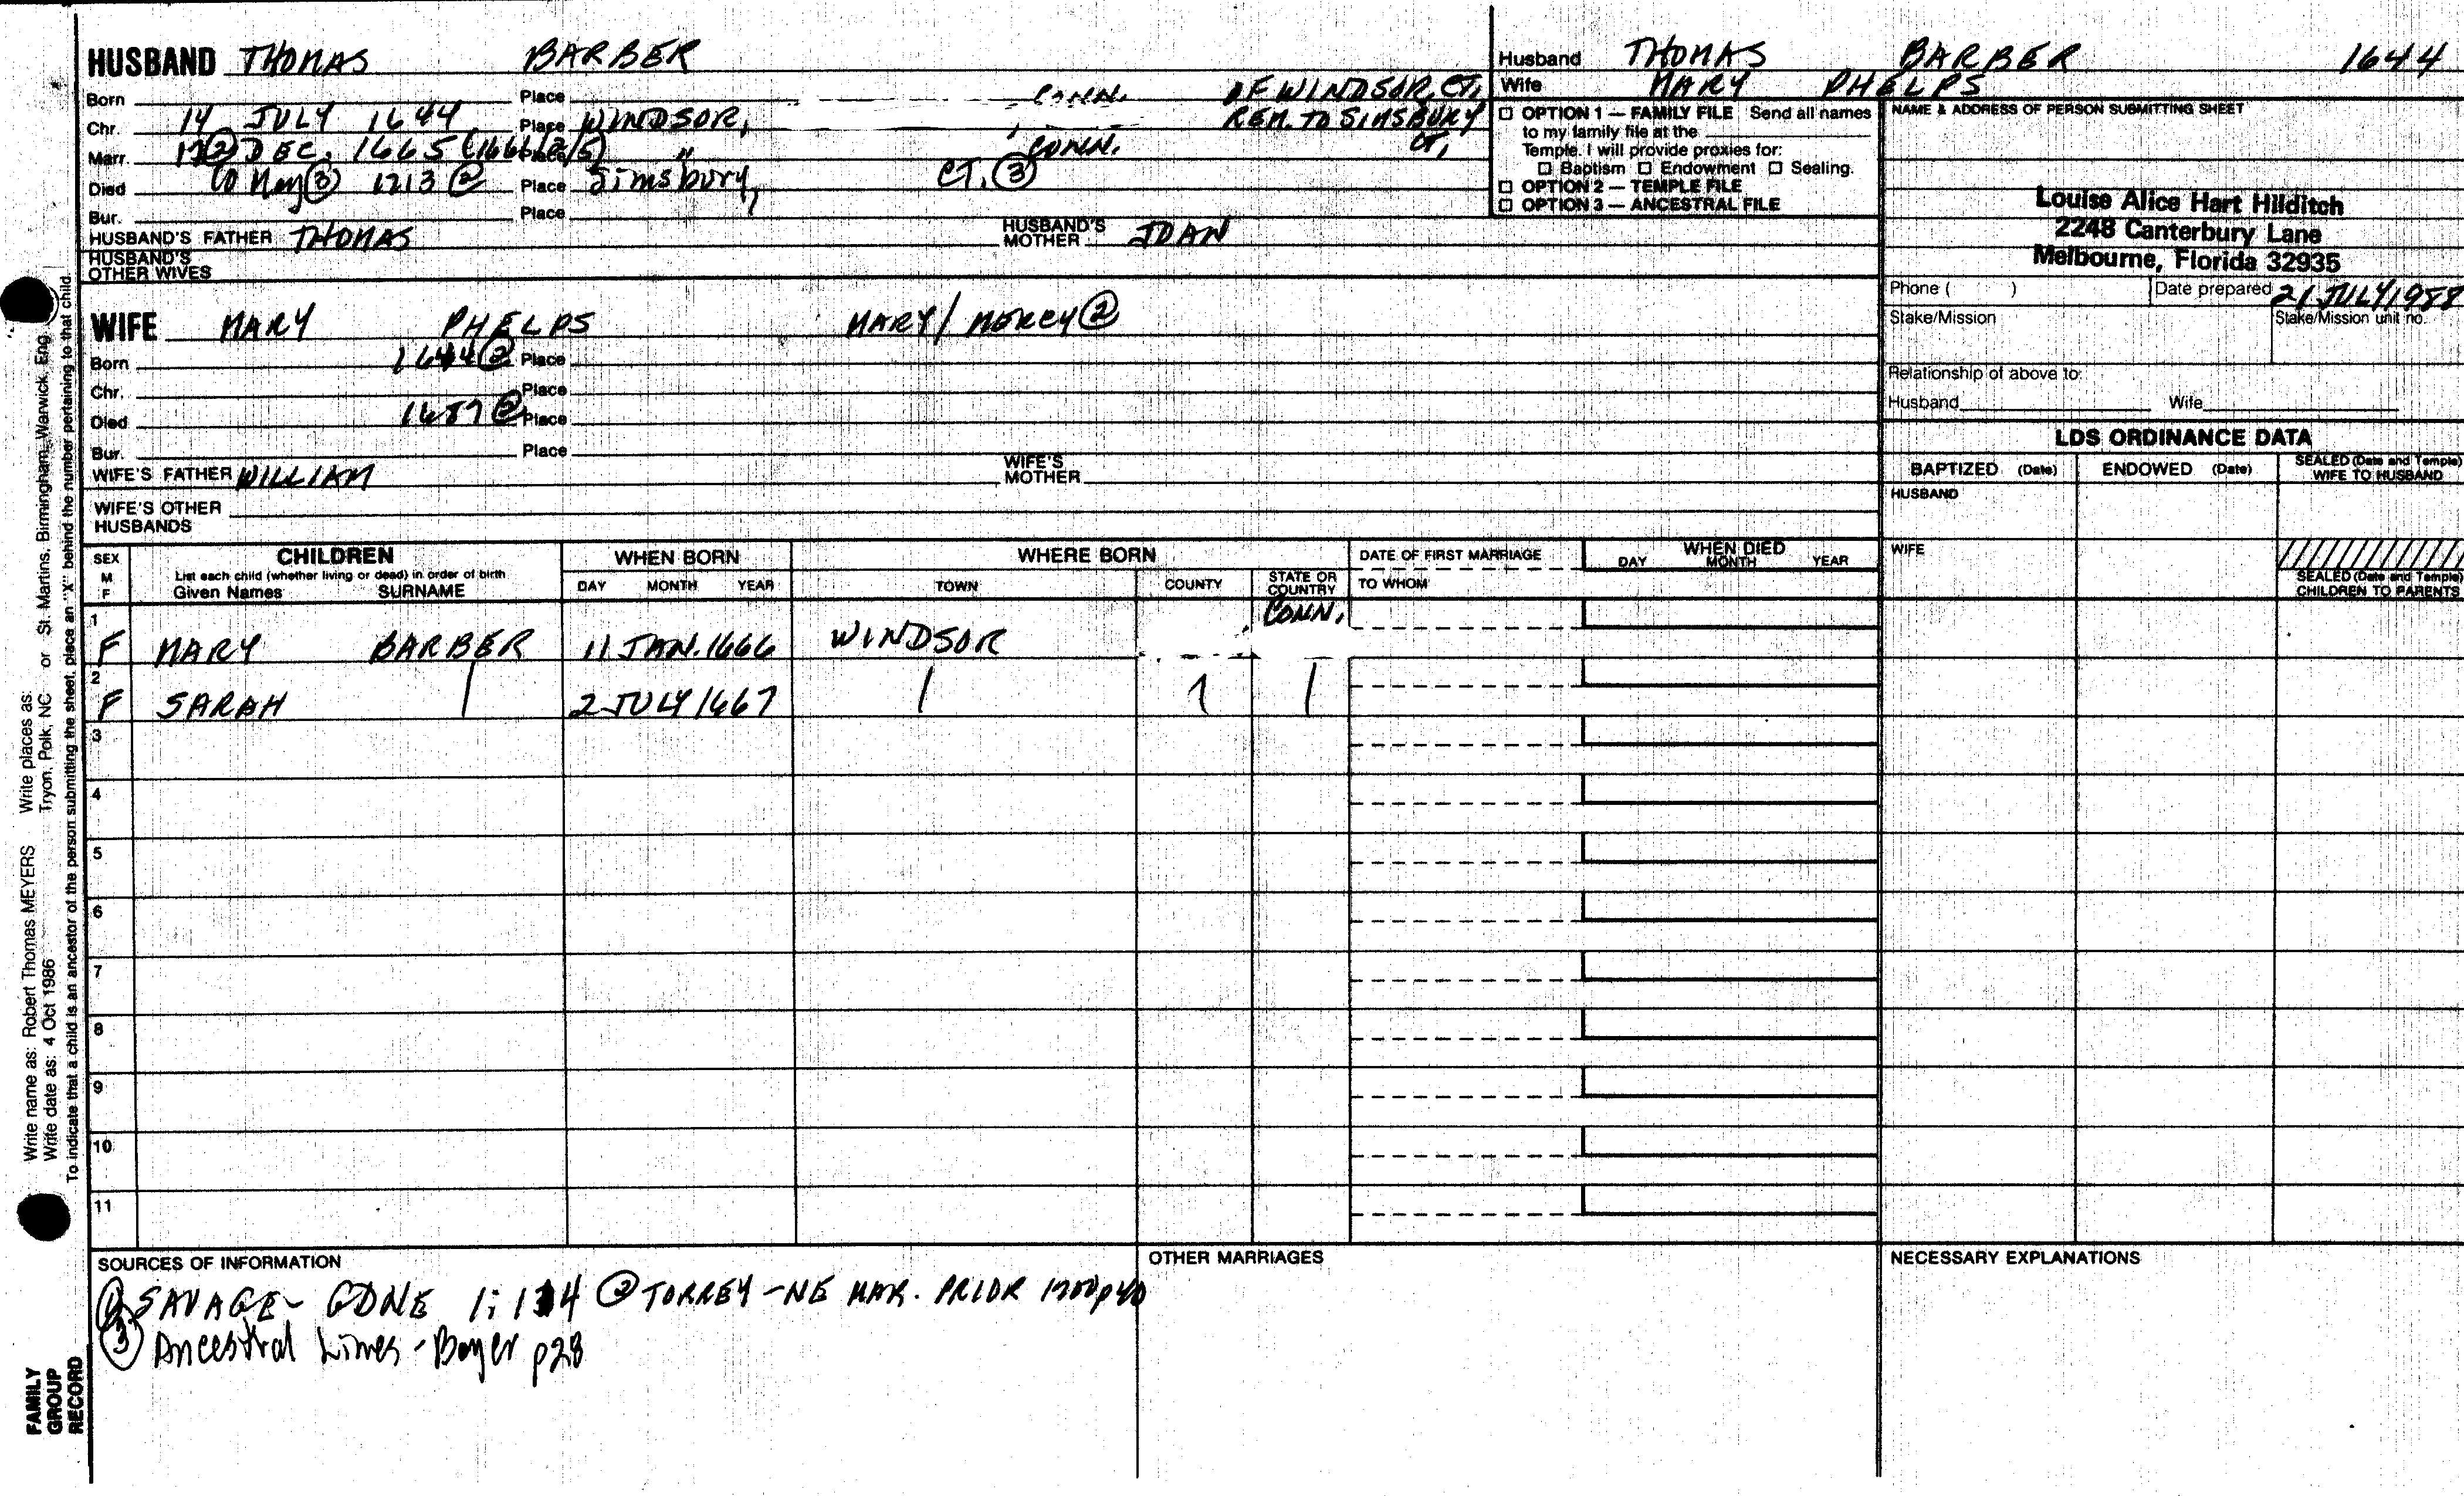 HUSBAND THOMAS BARBER
Born Place CONN. OF WINDSOR, CT,
Chr. 14 JULY 1644 Place WINDSOR, REM. TO SIMSBURY
Marr. 17② DEC. 1665 (1661/2/5) Place " CONN. CT,
Died 10 May③ 1713② Place Simsbury, CT. ③
Bur. Place
HUSBAND'S FATHER THOMAS HUSBAND'S MOTHER JOAN
HUSBAND'S OTHER WIVES
WIFE MARY PHELPS MARY/MERCY②
Born 1644② Place
Chr. Place
Died 1687② Place
Bur. Place
WIFE'S FATHER WILLIAM WIFE'S MOTHER
WIFE'S OTHER HUSBANDS
Husband THOMAS BARBER 1644
Wife MARY PHELPS
☐ OPTION 1 — FAMILY FILE Send all names
to my family file at the
Temple. I will provide proxies for:
☐ Baptism ☐ Endowment ☐ Sealing.
☐ OPTION 2 — TEMPLE FILE
☐ OPTION 3 — ANCESTRAL FILE
NAME & ADDRESS OF PERSON SUBMITTING SHEET
Louise Alice Hart Hilditch
2248 Canterbury Lane
Melbourne, Florida 32935
Phone ( ) Date prepared 21 JULY 1988
Stake/Mission Stake/Mission unit no.
Relationship of above to:
Husband Wife
LDS ORDINANCE DATA
BAPTIZED (Date) ENDOWED (Date) SEALED (Date and Temple) WIFE TO HUSBAND
HUSBAND
WIFE
SEALED (Date and Temple) CHILDREN TO PARENTS
SEX M F CHILDREN WHEN BORN WHERE BORN DATE OF FIRST MARRIAGE WHEN DIED
List each child (whether living or dead) in order of birth
Given Names SURNAME DAY MONTH YEAR TOWN COUNTY STATE OR COUNTRY TO WHOM DAY MONTH YEAR
1 F MARY BARBER 11 JAN. 1666 WINDSOR CONN.
2 F SARAH 2 JULY 1667
3
4
5
6
7
8
9
10
11
SOURCES OF INFORMATION OTHER MARRIAGES NECESSARY EXPLANATIONS
① SAVAGE- GDNE 1:114 ② TORREY-NE MAR. PRIOR 1700 p40
③ Ancestral Lines - Boyer p28
Write name as: Robert Thomas MEYERS Write places as: St. Martins, Birmingham, Warwick, Eng.
Write date as: 4 Oct 1986 or Tryon, Polk, NC
To indicate that a child is an ancestor of the person submitting the sheet, place an "X" behind the number pertaining to that child.
FAMILY
GROUP
RECORD